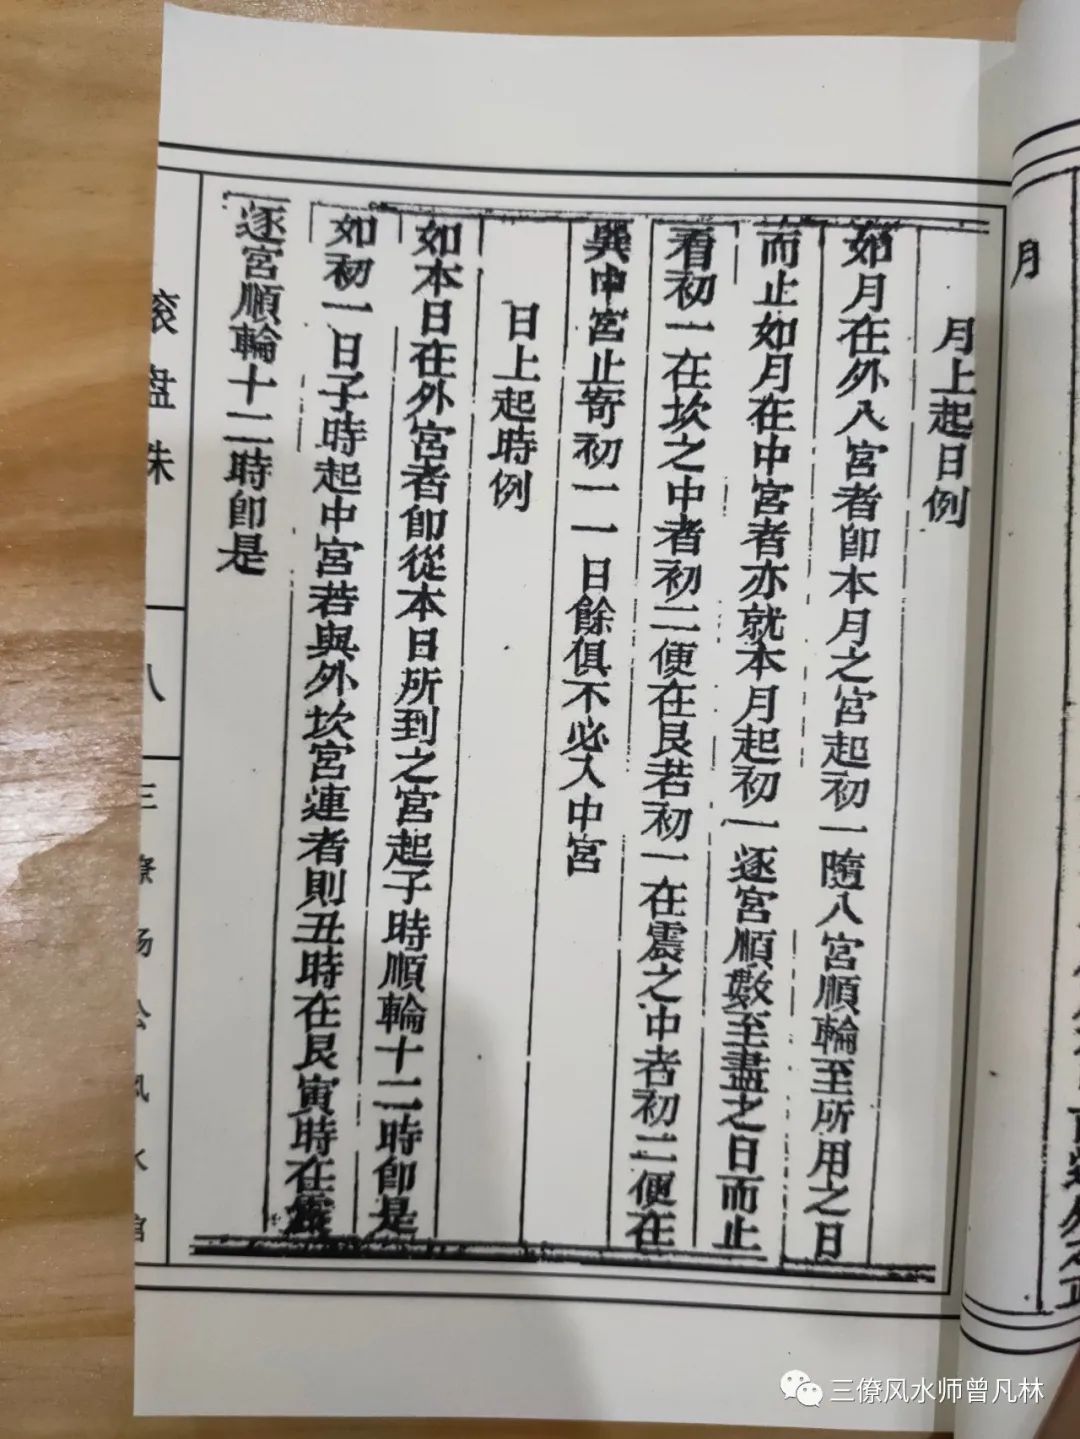 月
月上起日例
如月在外八宮者卽本月之宮起初一隨八宮順輪至所用之日
而止如月在中宮者亦就本月起初一逐宮順數至盡之日而止
看初一在坎之中者初二便在艮若初一在震之中者初二便在
巽中宮止寄初一一日餘俱不必入中宮
日上起時例
如本日在外宮者卽從本日所到之宮起子時順輪十二時卽是
如初一日子時起中宮若與外坎宮連者則丑時在艮寅時在震
逐宮順輪十二時卽是
滚盘珠
八
三僚杨公风水馆
三僚风水师曾凡林